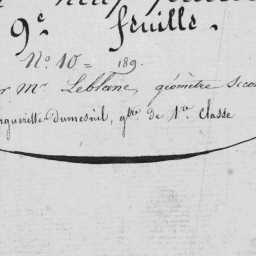 9e feuille.
No. 10 = 189.
r Mr Leblanc, géomètre secon
rguerille-Dumesnil, gtre de 1re Classe